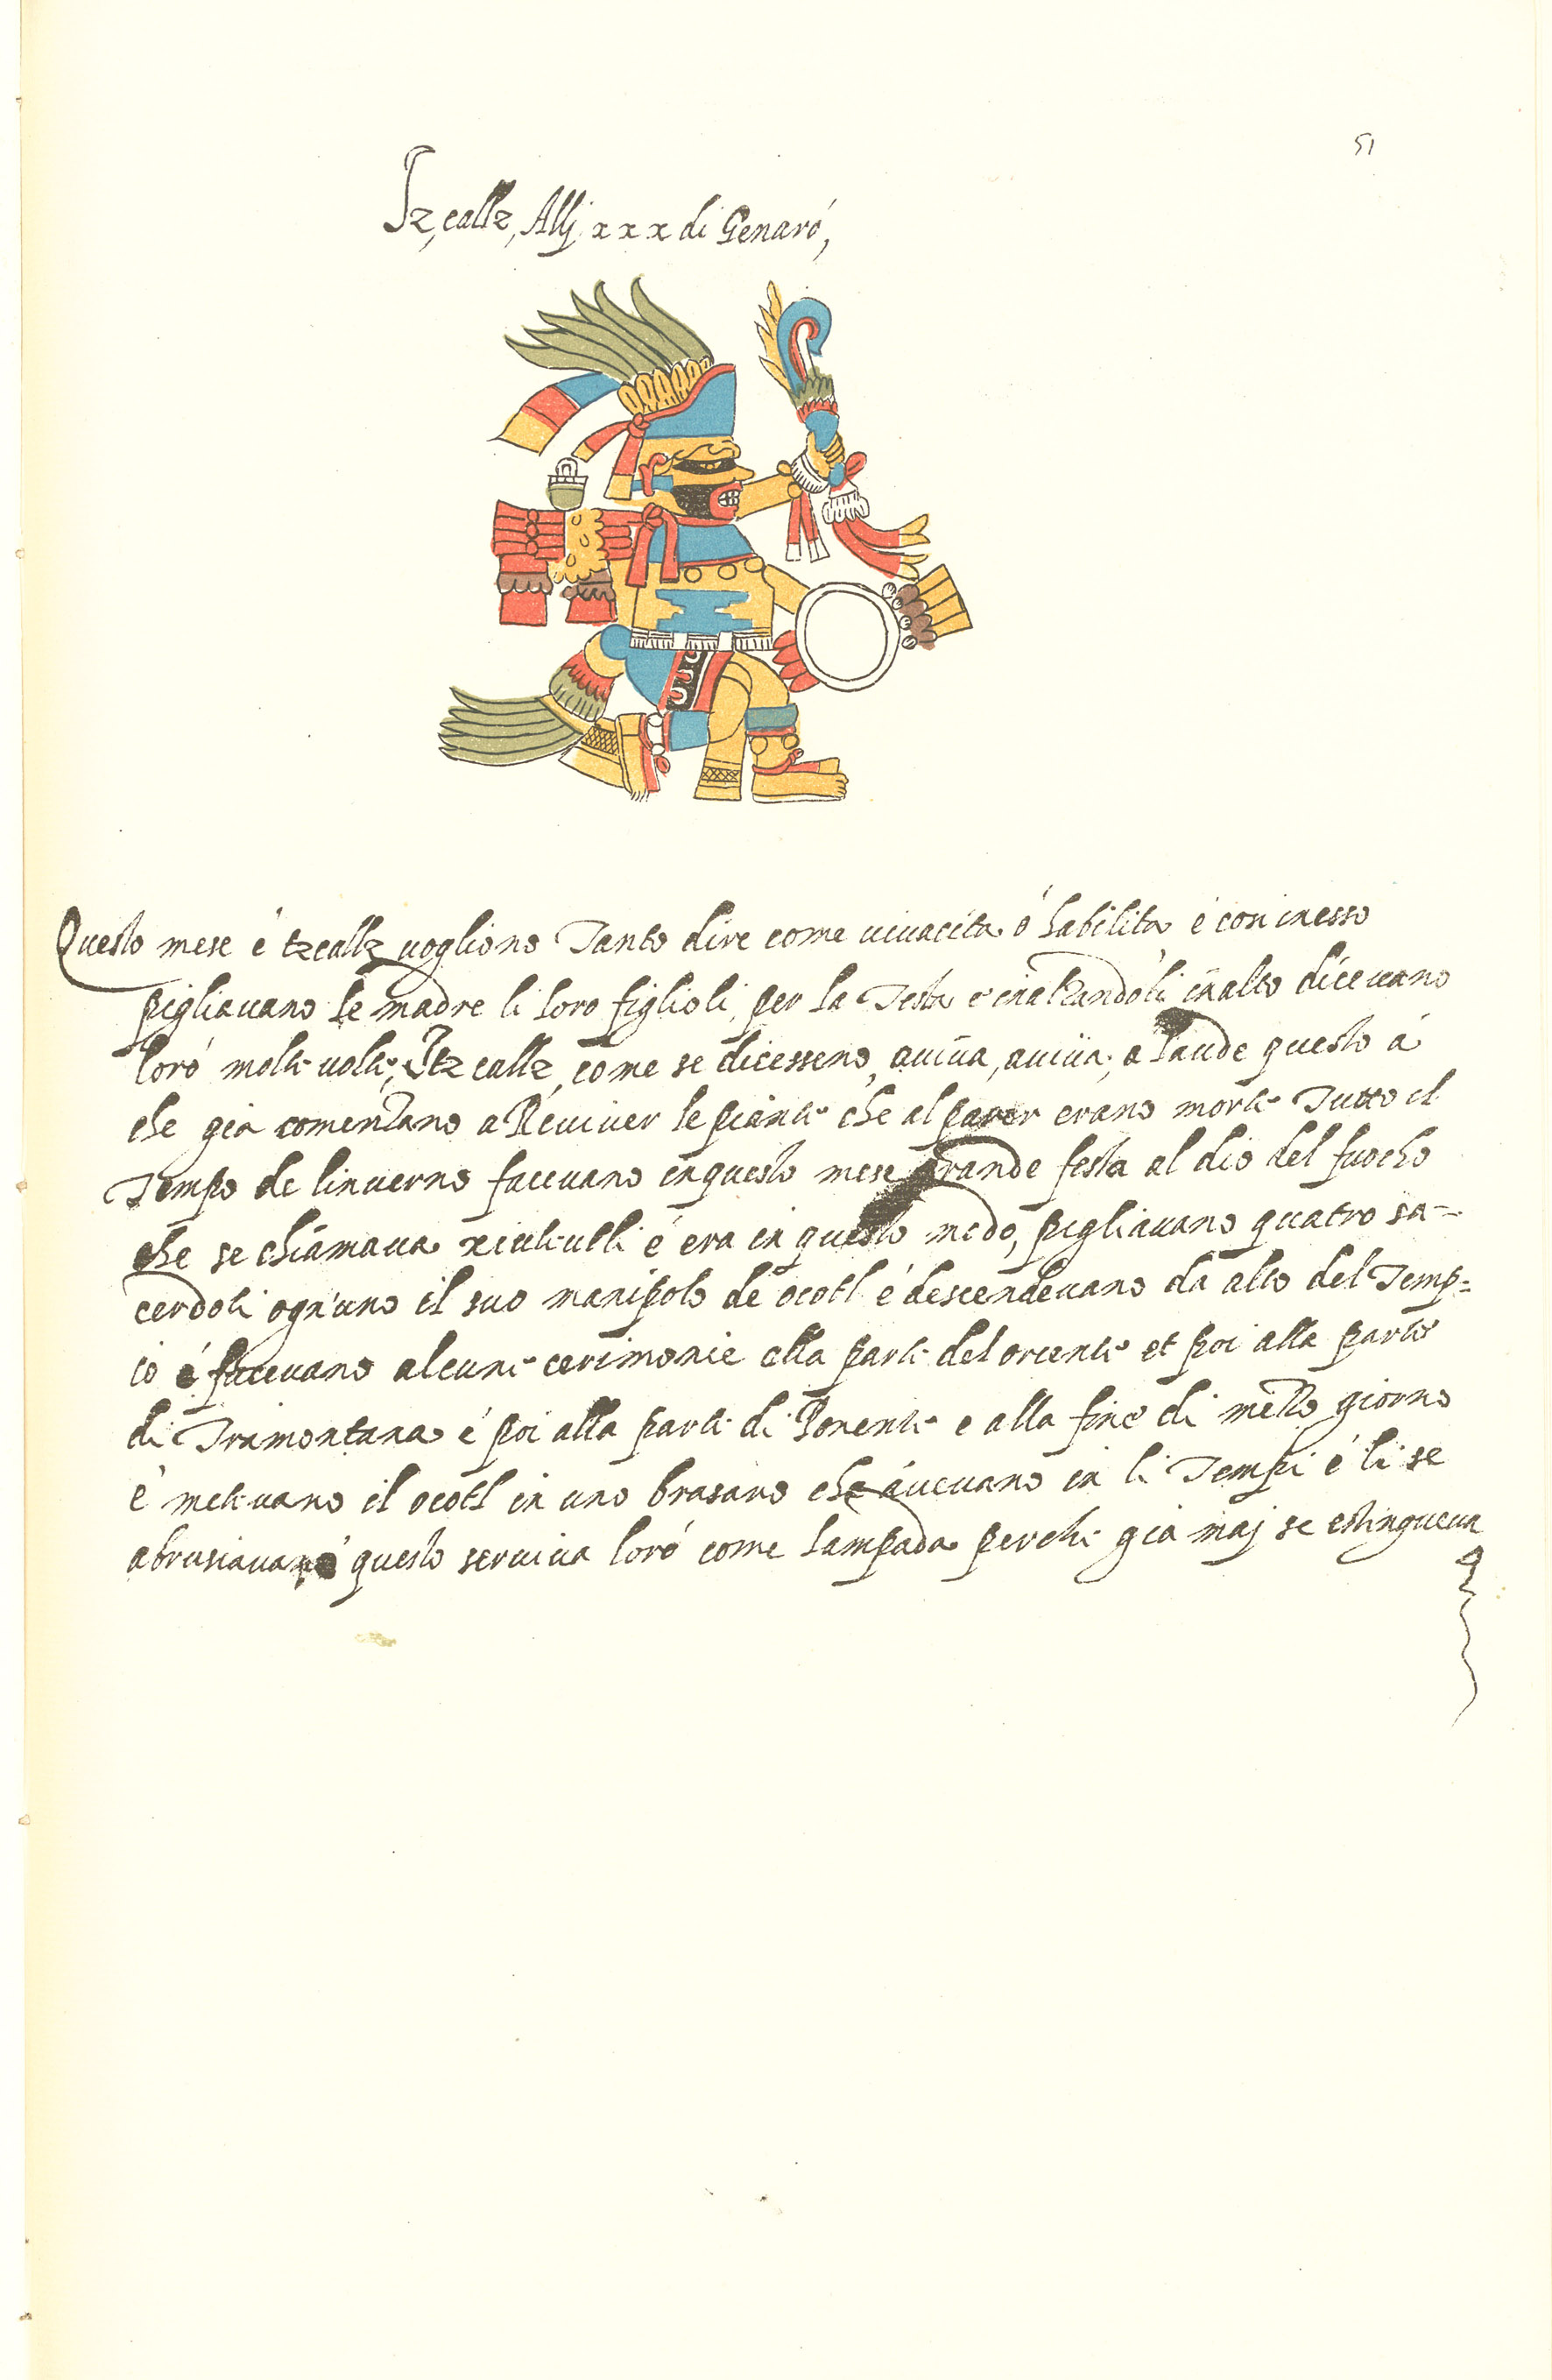 51
Iz,calle, Alli xxx di Genaro,
Questo mese é tzcalle vogliono Tanto dire come vivacita o habilita é con inesso
pigliavano le madre li loro figlioli, per la Testa e inalzandoli inalto dicevano
loro molte volte, Itz calle, come se dicesseno, aviva, aviva, a laude questo á
che gia comenzano a Reviver le piante che al parer erano morte Tutto il
Tempo de linverno facevano inquesto mese grande festa al dio del fuocho
che se chiamava xiuteutli é era in questo modo, pigliavano quatro sa-
cerdoti ogn'uno il suo manipolo de ocotl é descendevano da alto del Temp=
io é facevano alcune cerimonie alla parte del oriente et poi alla parte
di Tramontana é poi alla parte di Ponente e alla fine di mezzo giorno
é metevano il ocotl in uno brasaro che avevano in li Tempi é li se
abrusiavano questo serviva loro come lampada perche gia maj se estingueva